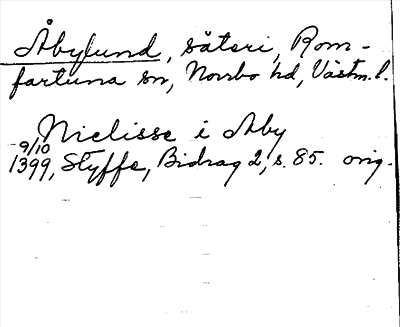 Åbylund, säteri, Rom-
fartuna sn, Norrbo hd, Västm.l.
Niclisse i Aby
9/10
1399, Styffe, Bidrag 2, s. 85. orig.